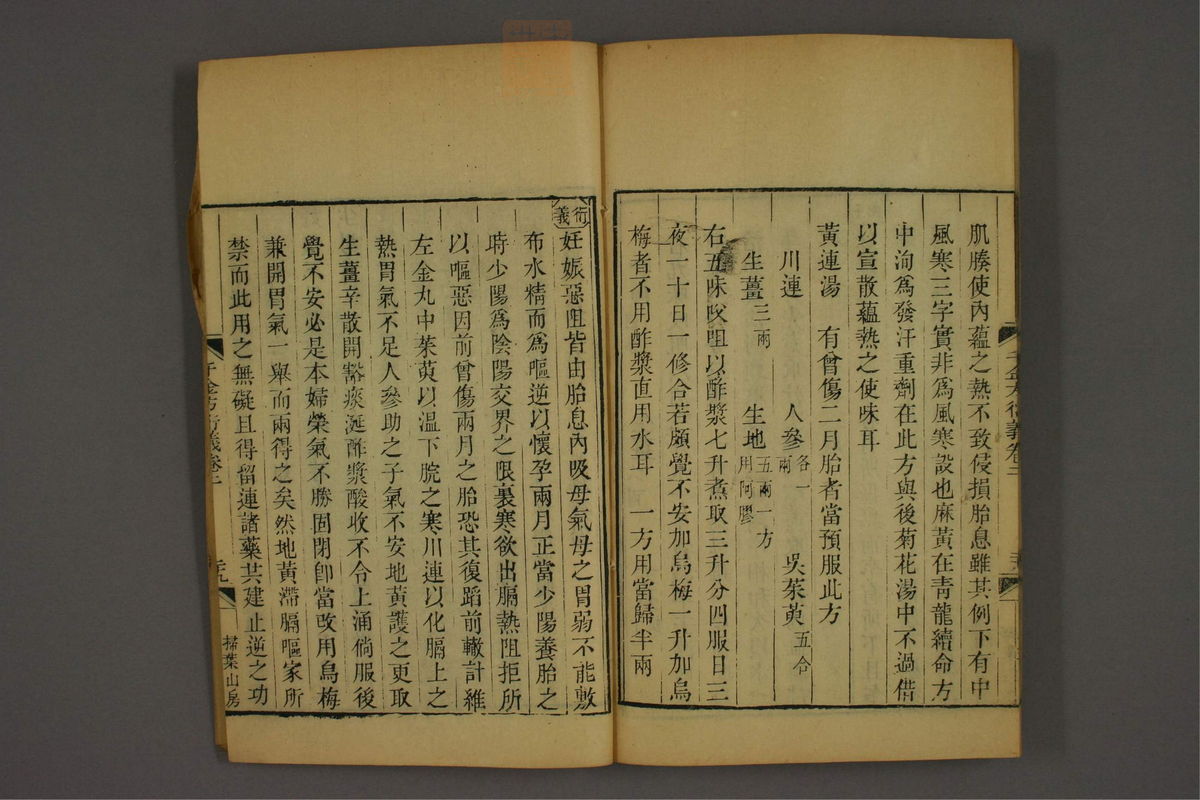 肌腠使內蘊之熱不致侵損胎息雖其例下有中
風寒三字實非爲風寒設也麻黃在青龍續命方
中洵爲發汗重劑在此方與後菊花湯中不過借
以宣散蘊熱之使味耳
黃連湯　有曾傷二月胎者當預服此方
川連　人參各一兩　吳茱萸五合
生薑三兩　生地五兩一方用阿膠
右五味㕮咀以酢漿七升煮取三升分四服日三
夜一十日一修合若頗覺不安加烏梅一升加烏
梅者不用酢漿直用水耳　一方用當歸半兩
衍義
妊娠惡阻皆由胎息內吸母氣母之胃弱不能敷
布水精而爲嘔逆以懷孕兩月正當少陽養胎之
時少陽爲陰陽交界之限裏寒欲出膈熱阻拒所
以嘔惡因前曾傷兩月之胎恐其復蹈前轍計維
左金丸中茱萸以溫下脘之寒川連以化膈上之
熱胃氣不足人參助之子氣不安地黃護之更取
生薑辛散開豁痰涎酢漿酸收不令上涌倘服後
覺不安必是本婦榮氣不勝固閉卽當改用烏梅
兼開胃氣一舉而兩得之矣然地黃滯膈嘔家所
禁而此用之無礙且得留連諸藥共建止逆之功
千金方衍義卷二
掃葉山房